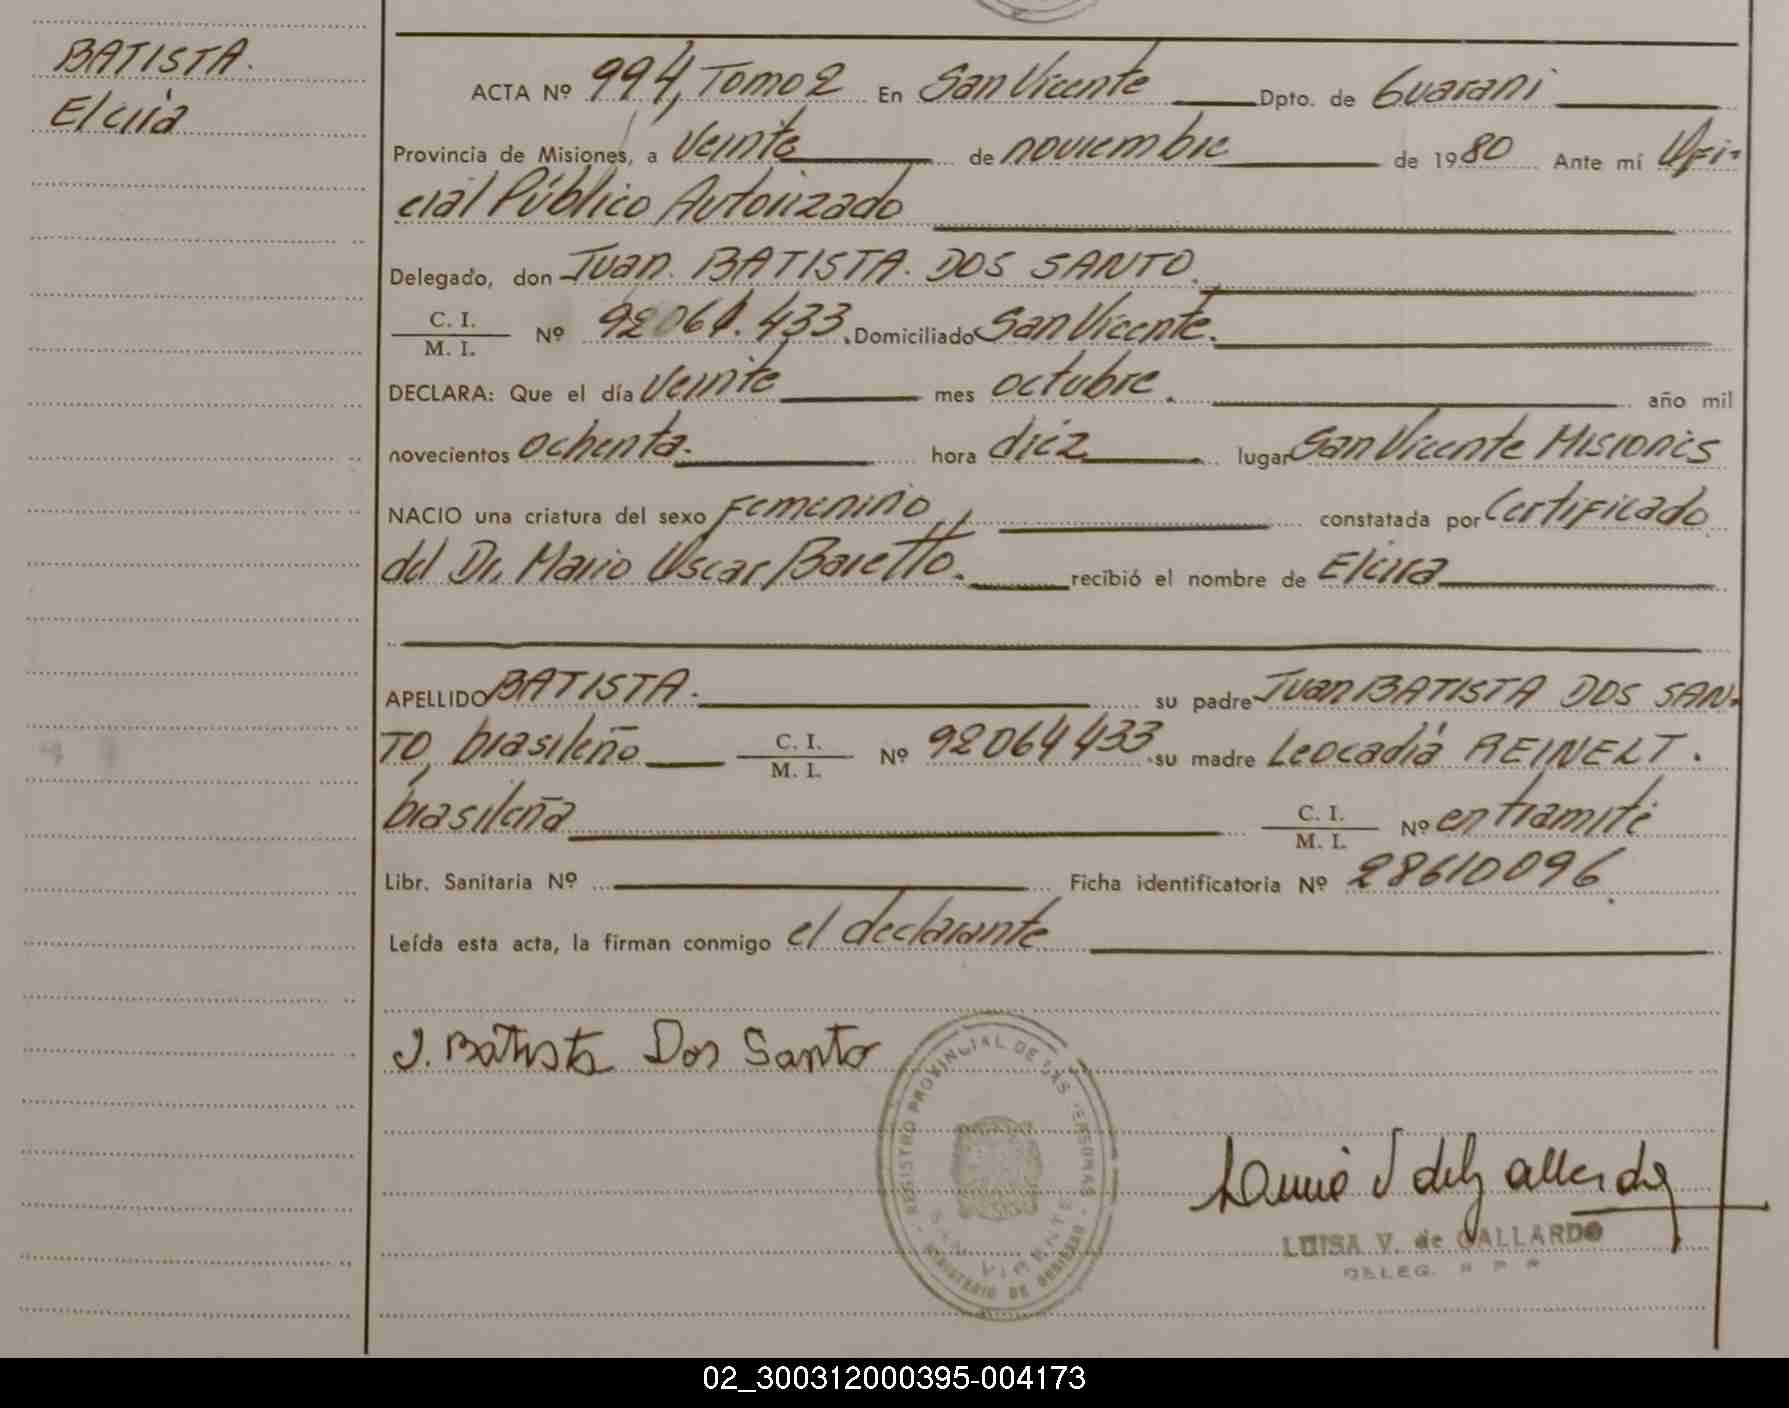 BATISTA.
Elcira
ACTA Nº 994, Tomo 2 En San Vicente Dpto. de Guarani
Provincia de Misiones, a veinte de noviembre de 1980 Ante mí Ofi-
cial Público Autorizado
Delegado, don Juan BATISTA DOS SANTO.
C. I.
M. I. Nº 92064.433. Domiciliado San Vicente.
DECLARA: Que el día veinte mes octubre. año mil
novecientos ochenta. hora diez lugar San Vicente Misiones
NACIO una criatura del sexo Femenino constatada por Certificado
del Dr. Mario Oscar Baretto. recibió el nombre de Elcira
APELLIDO BATISTA. su padre Juan BATISTA DOS SAN-
TO, brasileño C. I. M. I. Nº 92064433 su madre Leocadia REINELT.
brasileña C. I. M. I. Nº en tramite
Libr. Sanitaria Nº Ficha identificatoria Nº 28610096.
Leída esta acta, la firman conmigo el declarante
J. Batista Dos Santo
REGISTRO PROVINCIAL DE LAS PERSONAS
SAN VICENTE
MINISTERIO DE GOBIERNO
LUISA V. de GALLARDO
DELEG. R P P
02_300312000395-004173